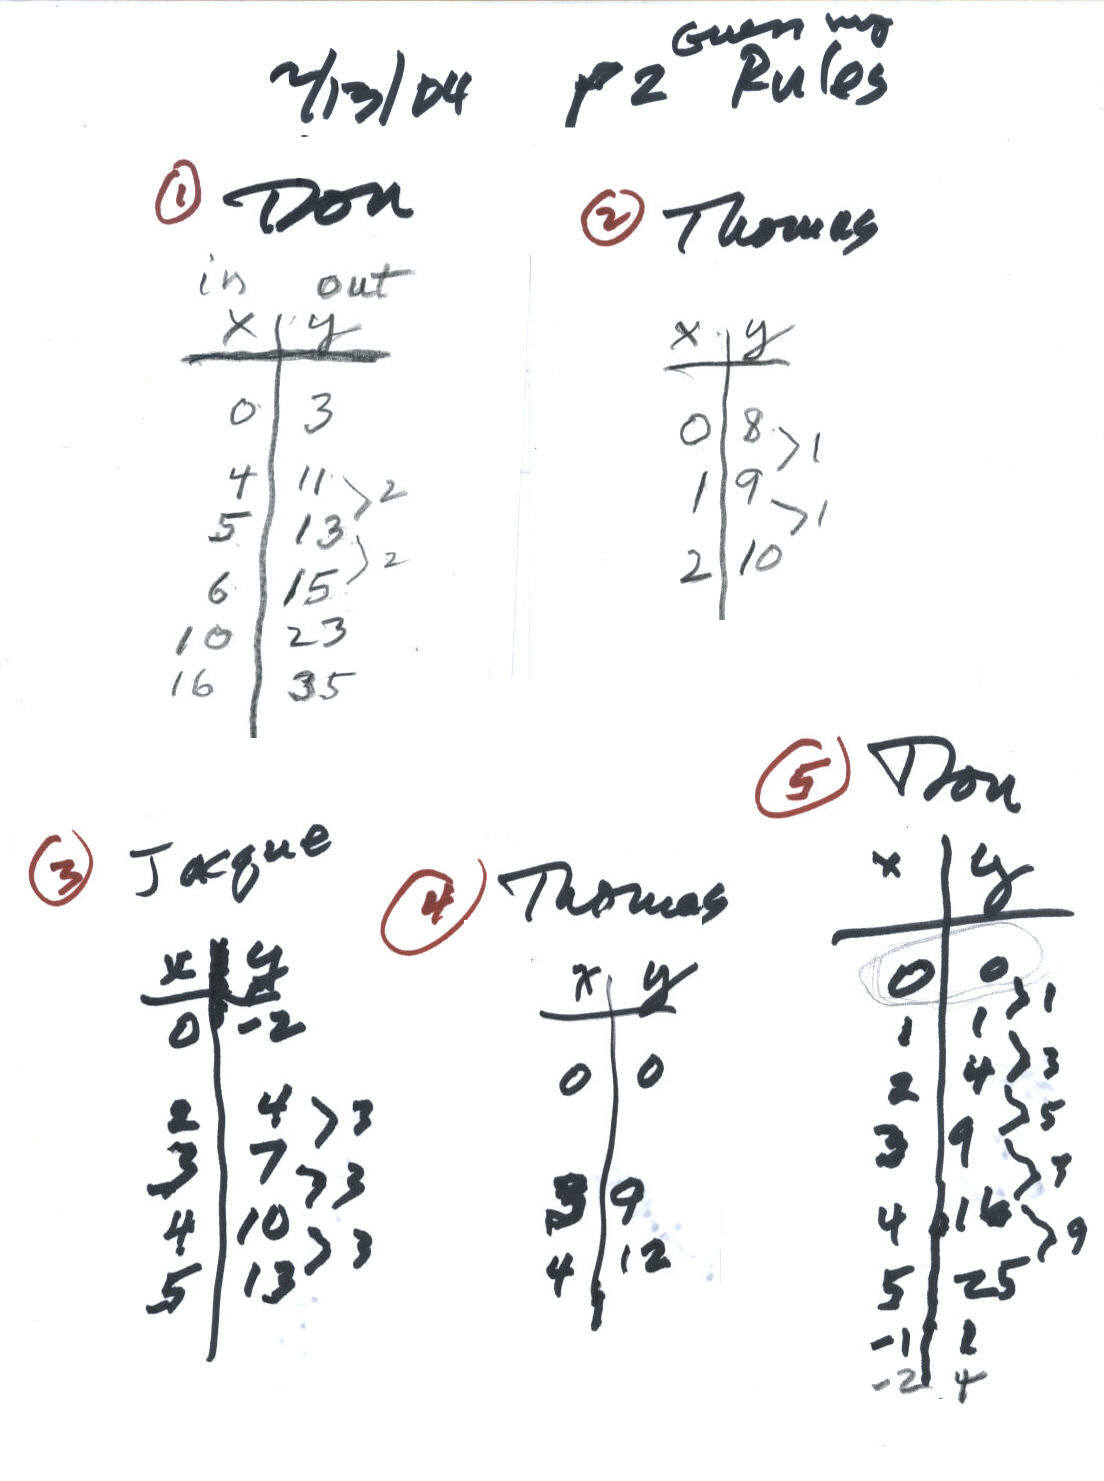 2/13/04 p 2 Guess my Rules
① Don
in out
x y
0 3
4 11 > 2
5 13 > 2
6 15
10 23
16 35
② Thomas
x y
0 8 > 1
1 9 > 1
2 10
③ Jacque
x y
0 -2
2 4 > 3
3 7 > 3
4 10 > 3
5 13
④ Thomas
x y
0 0
3 9
4 12
⑤ Don
x y
0 0 > 1
1 1 > 3
2 4 > 5
3 9 > 7
4 16 > 9
5 25
-1
-2 4